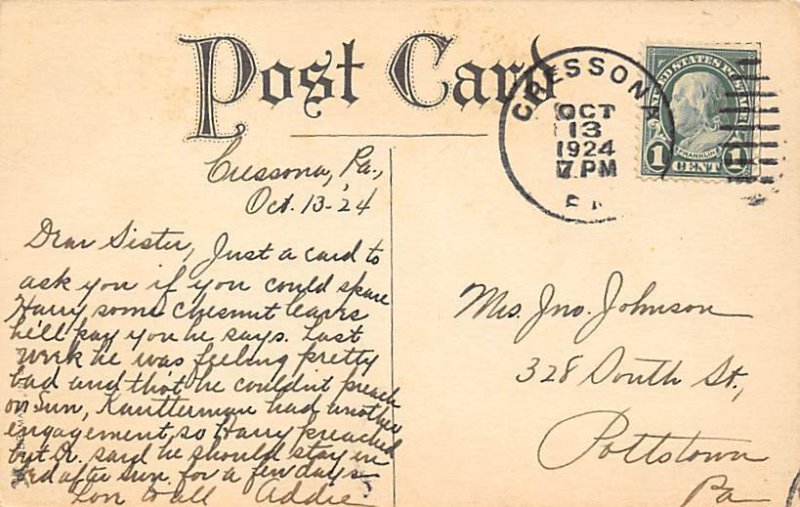 Post Card
CRESSONA
OCT
13
1924
7 PM
PA
UNITED STATES POSTAGE
FRANKLIN
1 CENT 1
Cressona, Pa.,
Oct. 13-'24
Dear Sister, Just a card to
ask you if you could spare
Harry some chesnut leaves
he'll pay you he says. Last
week he was feeling pretty
bad and tho't he couldn't preach
on Sun, Kautterman had another
engagement, so Harry preached
but Dr. said he should stay in
bed after sun. for a few days
Lon to all Addie
Mrs. Jno. Johnson
328 South St.,
Pottstown
Pa